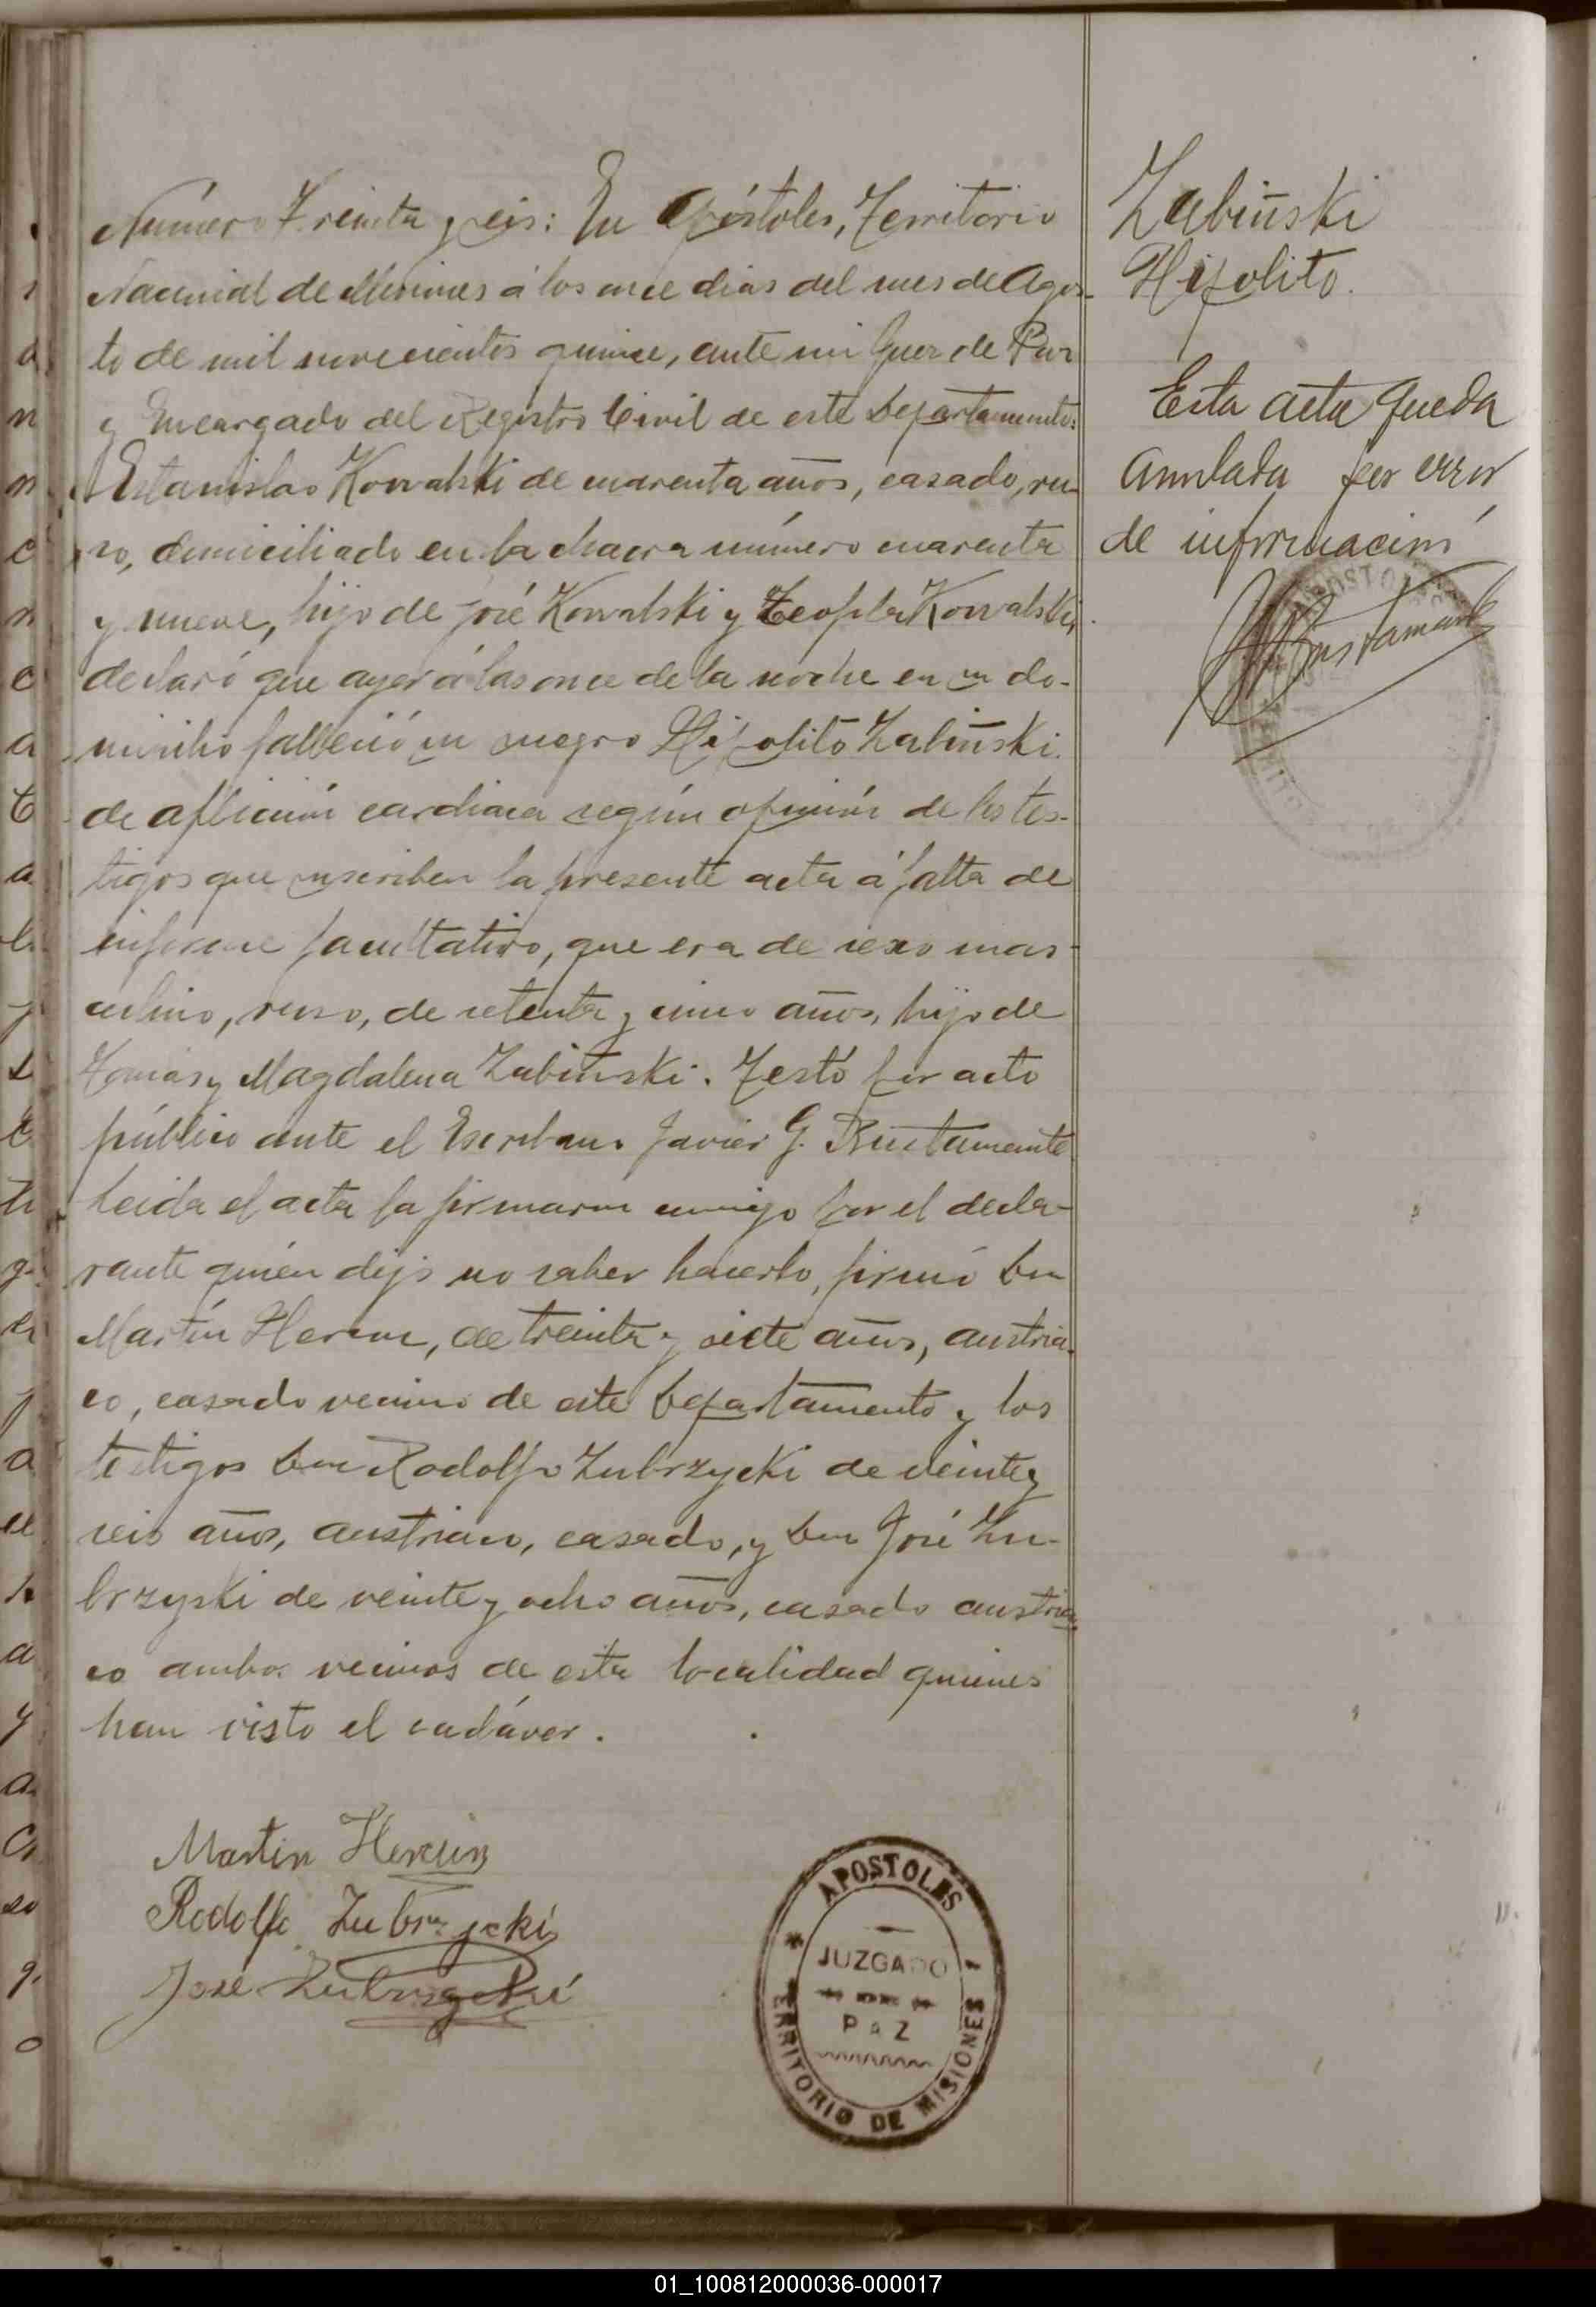 Número Treinta y seis: En Apóstoles, Territorio
Nacional de Misiones á los once dias del mes de Agos-
to de mil novecientos quince, ante mi Juez de Paz
y Encargado del Registro Civil de este Departamento:
Estanislao Kowalski de cuarenta años, casado, ru-
so, domiciliado en la chacra número cuarenta
y nueve, hijo de José Kowalski y Teofila Kowalski,
declaró que ayer á las once de la noche en su do-
micilio falleció su suegro Hipolito Zabiñski
de aflicción cardiaca según opinión de los tes-
tigos que suscriben la presente acta á falta de
informe facultativo, que era de sexo mas-
culino, ruso, de setenta y cinco años, hijo de
Tomás y Magdalena Zubiñski. Testó por acto
público ante el Escribano Javier G. Bustamante
Leida el acta la firmaron conmigo por el decla-
rante quién dijo no saber hacerlo, firmó Don
Martín , de treinta y siete años, austria-
co, casado vecino de este Departamento y los
testigos Don Rodolfo Zubrzycki de veinte y
seis años, austriaco, casado, y Don José Zu-
brzyski de veinte y ocho años, casado austria
co ambos vecinos de esta localidad quienes
han visto el cadáver.
Martin
Rodolfo Zubrzycki
José Zubrzycki
APOSTOLES
JUZGADO
DE
PAZ
TERRITORIO DE MISIONES
Zubiñski
Hipolito.
Esta acta queda
anulada por error
de información
Bustamante
APOSTOLES
01_100812000036-000017